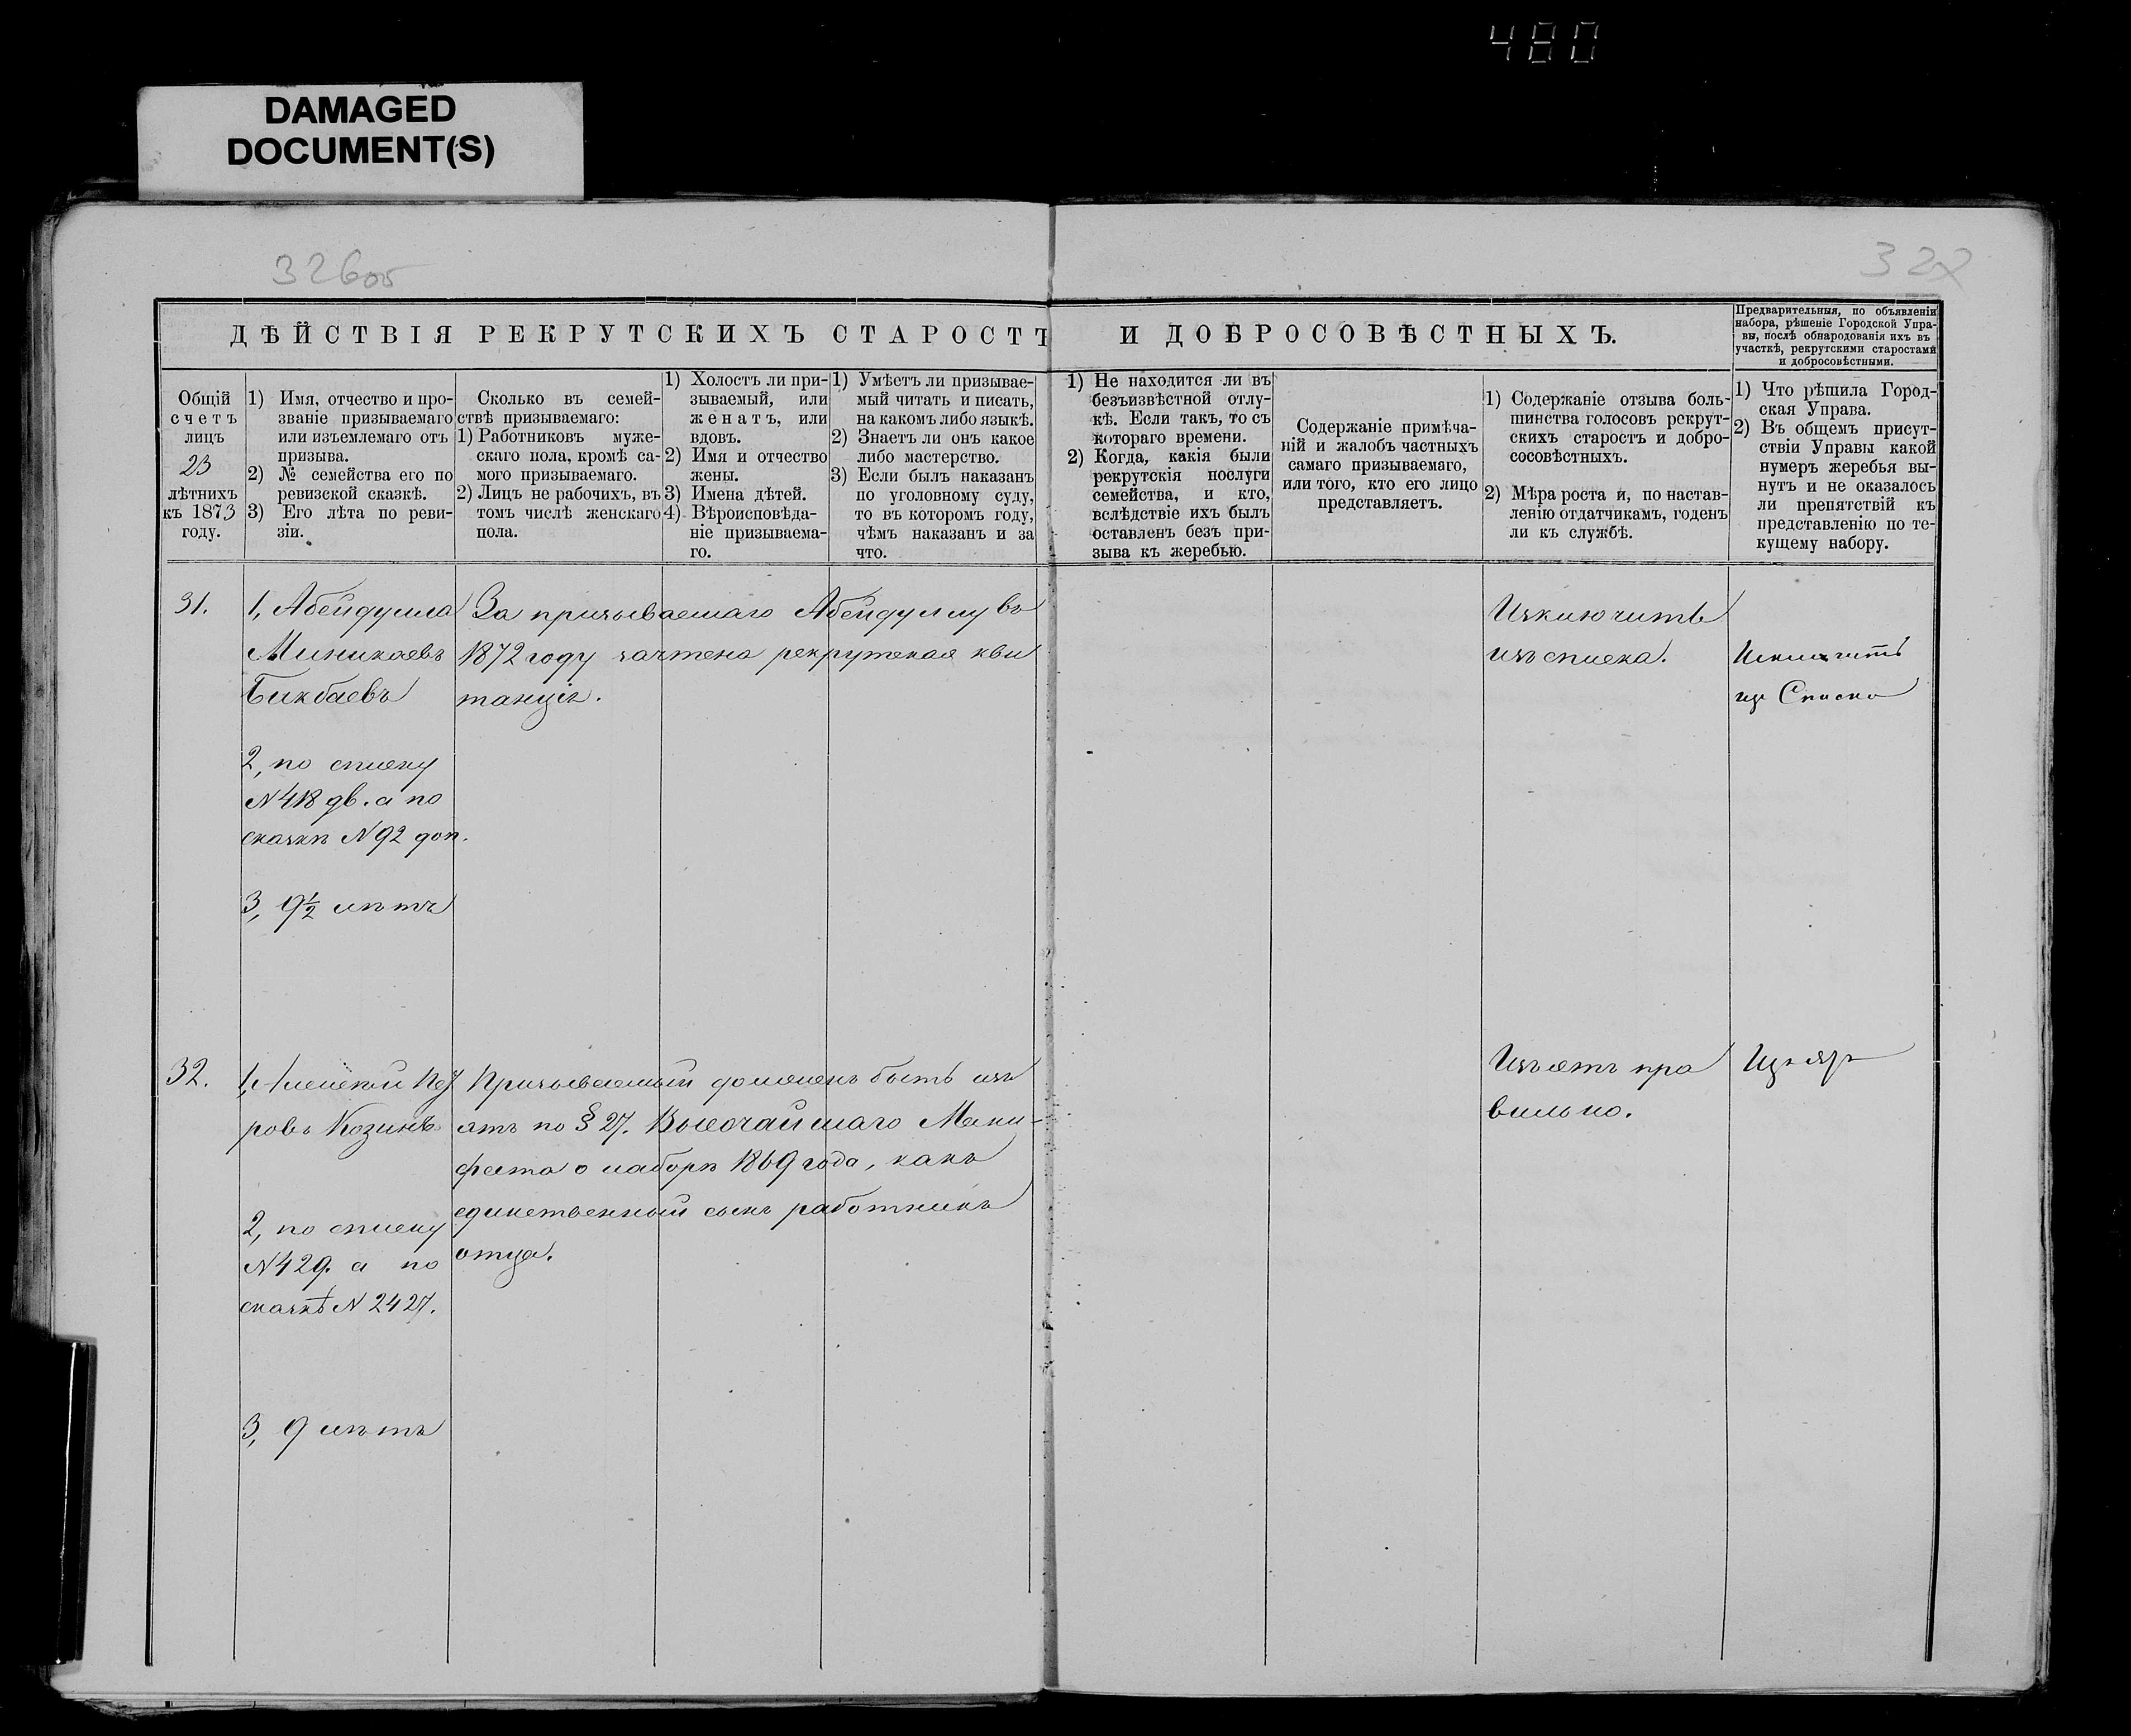 480
DAMAGED
DOCUMENT(S)
326об
327
ДѢЙСТВІЯ РЕКРУТСКИХЪ СТАРОСТЪ И ДОБРОСОВѢСТНЫХЪ.
Предварительныя, по объявленіи
набора, рѣшеніе Городской Упра-
вы, послѣ обнародованія ихъ въ
участкѣ, рекрутскими старостами
и добросовѣстными.
Общій
счетъ
лицъ
23
лѣтнихъ
къ 1873
году.
1) Имя, отчество и про-
званіе призываемаго
или изъемлемаго отъ
призыва.
2) № семейства его по
ревизской сказкѣ.
3) Его лѣта по реви-
зіи.
Сколько въ семей-
ствѣ призываемаго:
1) Работниковъ муже-
скаго пола, кромѣ са-
мого призываемаго.
2) Лицъ не рабочихъ, въ
томъ числѣ женскаго
пола.
1) Холостъ ли при-
зываемый, или
женатъ, или
вдовъ.
2) Имя и отчество
жены.
3) Имена дѣтей.
4) Вѣроисповѣда-
ніе призываема-
го.
1) Умѣетъ ли призывае-
мый читать и писать,
на какомъ либо языкѣ.
2) Знаетъ ли онъ какое
либо мастерство.
3) Если былъ наказанъ
по уголовному суду,
то въ которомъ году,
чѣмъ наказанъ и за
что.
1) Не находится ли въ
безъизвѣстной отлу-
кѣ. Если такъ, то съ
котораго времени.
2) Когда, какія были
рекрутскія послуги
семейства, и кто,
вслѣдствіе ихъ былъ
оставленъ безъ при-
зыва къ жеребью.
Содержаніе примѣча-
ній и жалобъ частныхъ
самаго призываемаго,
или того, кто его лицо
представляетъ.
1) Содержаніе отзыва боль-
шинства голосовъ рекрут-
скихъ старостъ и добро-
сосовѣстныхъ.
2) Мѣра роста и, по настав-
ленію отдатчикамъ, годенъ
ли къ службѣ.
1) Что рѣшила Город-
ская Управа.
2) Въ общемъ присут-
ствіи Управы какой
нумеръ жеребья вы-
нутъ и не оказалось
ли препятствій къ
представленію по те-
кущему набору.
31.
1, Абейдулла
Миникаевъ
Бикбаевъ
2, по списку
N 418 дв. а по
сказкѣ N 92 доп.
3, 9½ лѣтъ
За призываемаго Абейдуллу въ
1872 году зачтена рекрутская кви
танція.
Изключить
изъ списка.
Исключить
из Списка
32.
1, Алексѣй Пет
ровъ Козинъ
2, по списку
N 429. а по
сказкѣ N 2427.
3, 9 лѣтъ
Призываемый долженъ быть изъ
ятъ по § 27. Высочайшаго Мани-
феста о наборѣ 1869 года, какъ
единственный сынъ работникъ
отца.
Изъятъ пра
вильно.